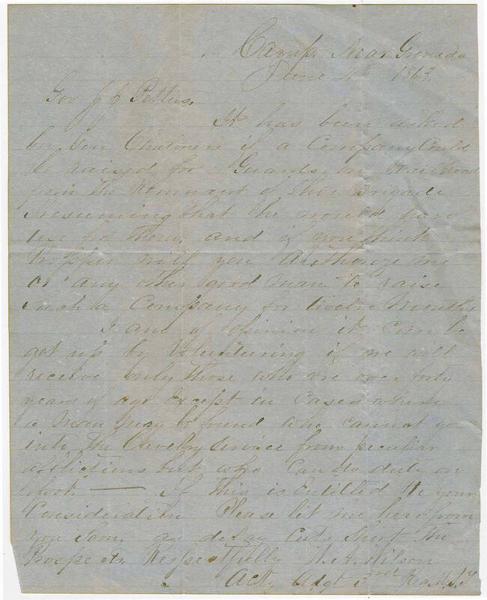 Camp Near Grenada
June 4th 1863
Gov J J Pettus
It has been asked
by Gen Chalmers if a Company Could
be raised for Guards, or
from the Remnant of this Brigade
presuming that he would have
to, and if you think
proper will you Authorize me
or any other good man to raise
such a Company for twelve Months
I am of opinion it can be
got up by Volunteering if we will
receive only those who are over
years of age except in Cases where
a man may be found who cannot go
into the Cavelry Service from peculiar
afflictions but who Can do duty on
foot — If this is Entitled to your
Consideration Please let me hear from
you soon as delay Cuts short the
Prospects Respectfully Wilson
Actg Adgt